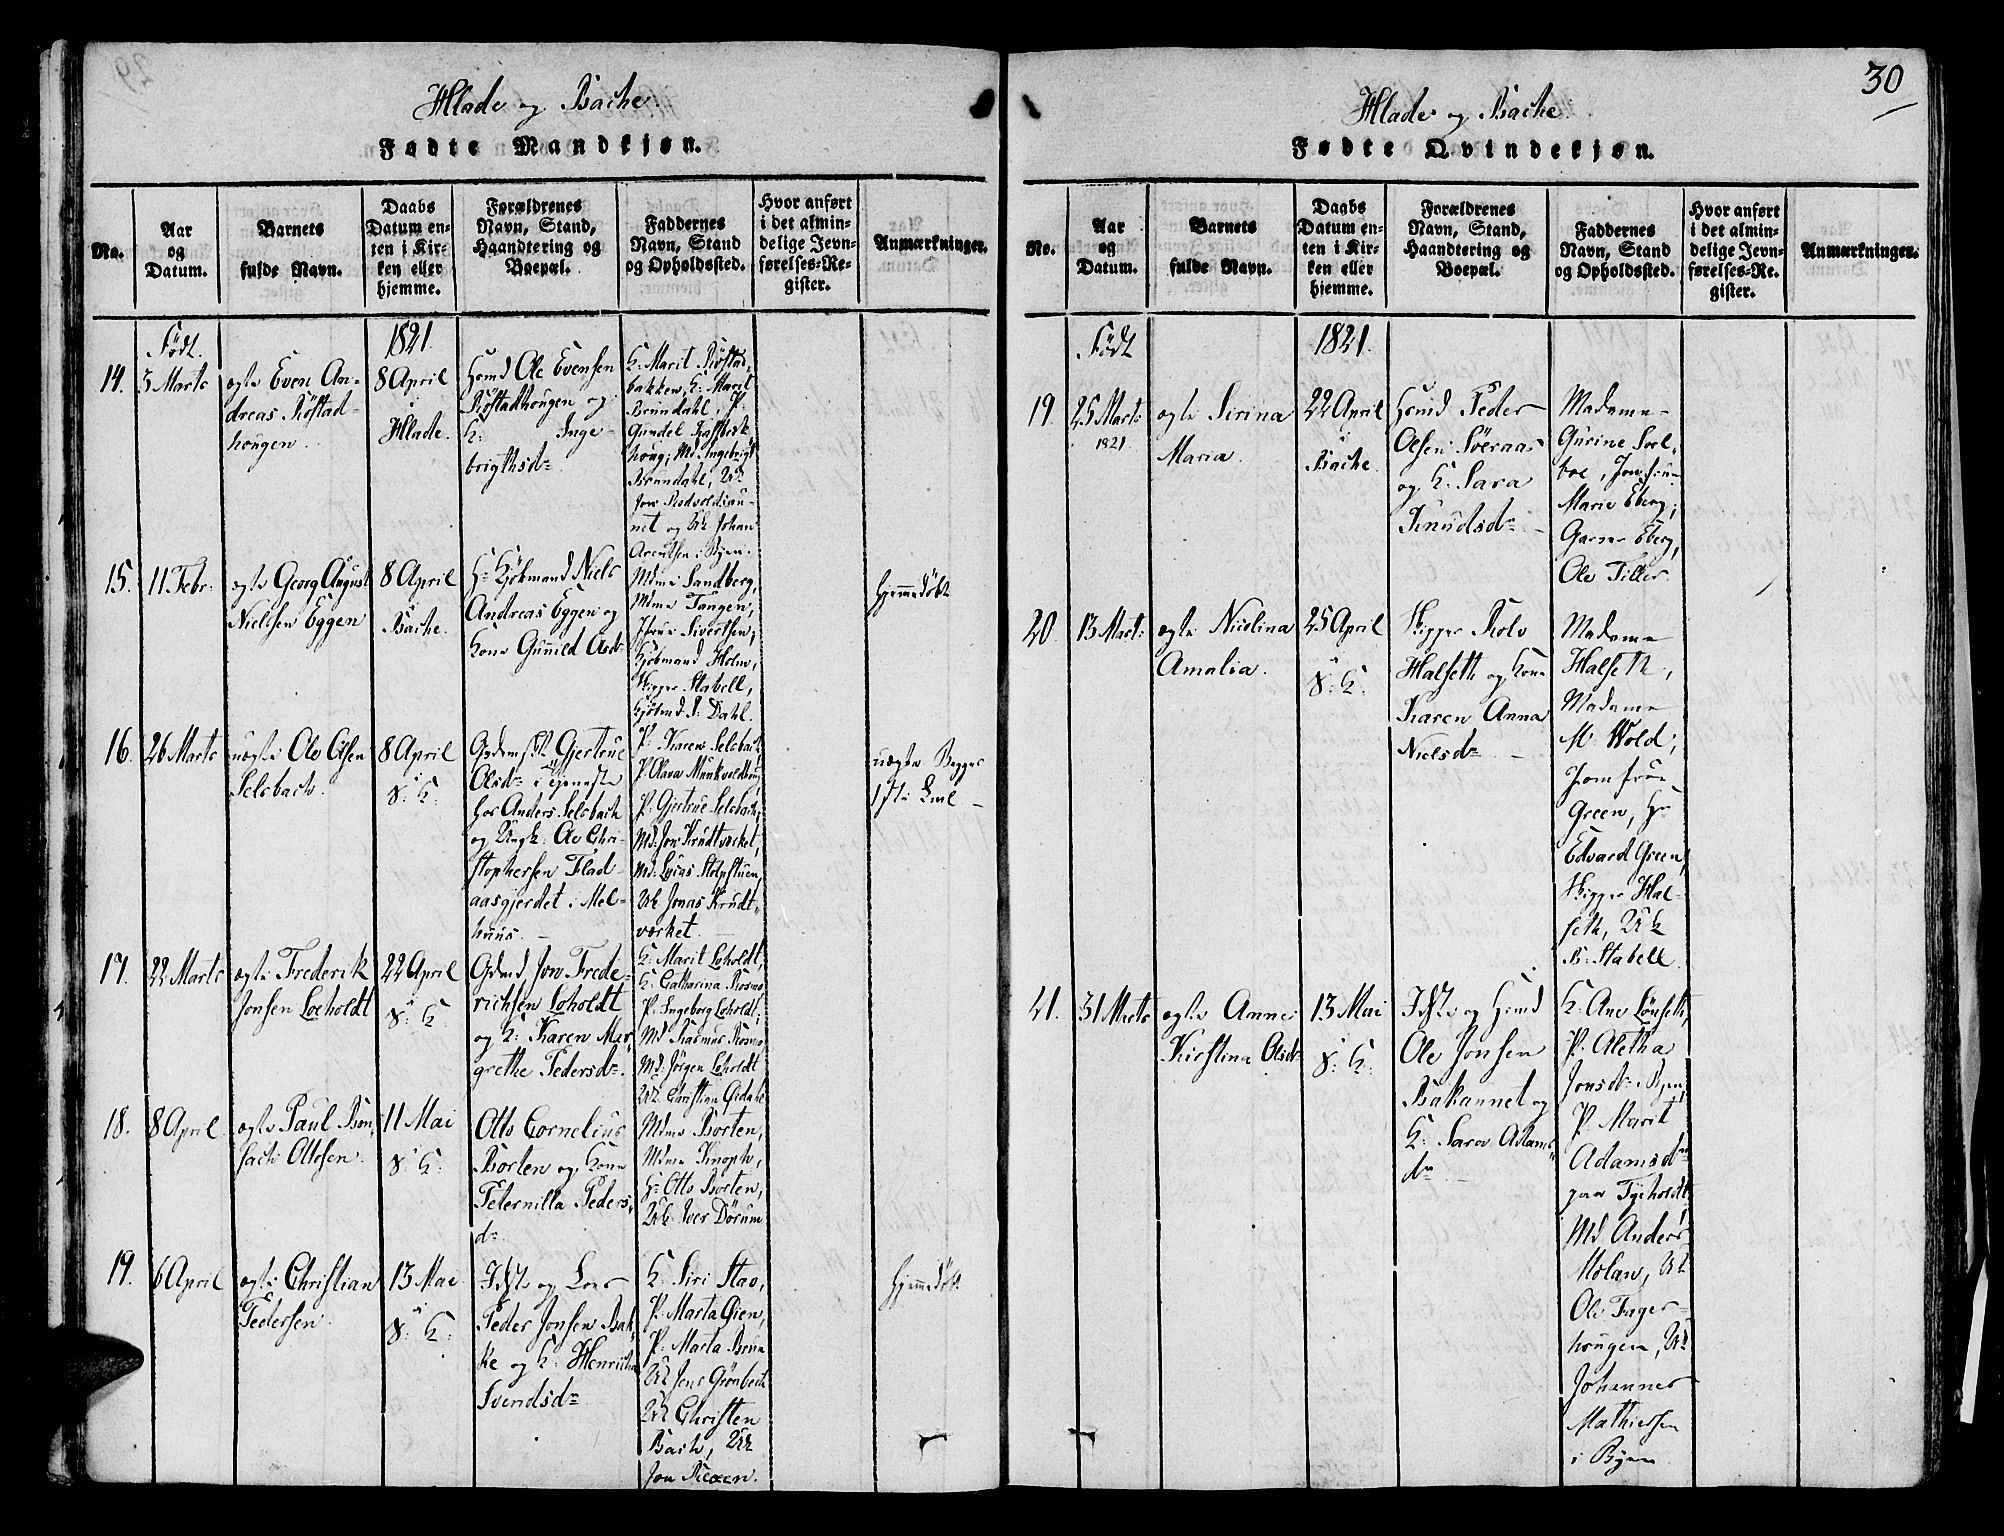 Hlade og Bache.
Fødte Mandkjøn.
No.
Aar
og
Datum.
Barnets
fulde Navn.
Daabs
Datum en-
ten i Kir-
ken eller
hjemme.
Forældrenes
Navn, Stand,
Haandtering og
Boepæl.
Faddernes
Navn, Stand
og Opholdssted.
Hvor anført
i det almin-
delige Jevn-
førelses-Re-
gister.
Anmærkninger.
Født
1821.
14.
3 Marts
ægte Even An-
dreas Røstad-
hougen
8 April
i
Hlade.
Hmd Ole Evensen
Røstadhougen og
K: Inge-
brigthsdr
K: Marit Røstad-
bakken, K: Marit
Brundahl, P.
Gundel
houg; Md Ingebrigt
Brundahl, Uk
Jon
net og Uk Johan
Arentsen i Byen.
15.
11 Febr.
ægte Georg August
Nielsen Eggen
8 April
i
Bache.
Hr Kjøbmand Niels
Andreas Eggen og
Kone Gunild Asdr
Mdme Sandberg,
Mdme Tangen,
Jfrue Sivertsen,
Kjøbmand Holm,
Skipper Stabell,
Kjøbmd P. Dahl.
Hjemmedøbt
16.
26 Marts
uægte Ole Olsen
Selsbach.
8 April
S: K:
Gjertrue
Olsdr i tjeneste
hos Anders Selsbach
og Ungk. Ole Chri-
stophersen Flad-
aasgjerdet i Mel-
huus.
P. Karen Selsbach,
P. Olava Munkvoldhoug
P. Gjertrue Selsbach;
Md: Jon Krudtværket,
Md: Lucas Stolpstuen,
Uk Jonas Krudt-
værket.
uægte
17.
22 Marts
ægte Frederik
Jonsen Loeholdt
22 April
S: K:
Gdmd Jon Frede-
richsen Loholdt
og K: Karen Mar-
grethe Pedersdr.
K: Marit Loholdt,
K: Catharina Rosmo
P. Ingeborg Loholdt;
Md Rasmus Rosmo
Md: Jörgen Loholdt
Uk: Christian Ørdahl
18.
8 April
ægte Paul Bon-
sach Ottesen.
11 Mai
S: K:
Otto Cornelius
Borten og Kone
Peternilla Peders-
dr
Mdme Borten,
Mdme Knoph,
Hr Otto Borten,
Uk: Iver Dørum
19.
6 April
ægte Christian
Pedersen.
13 Mai
S: K:
Idst og Loes
Peder Jonsen Bak-
ke og K: Henricha
Svendsdr
K: Siri Stav,
P: Marta Øien,
P: Marta Brun
Uk Jens Grønbech
Uk Christen
Bach, Uk
Jon
Hjemmedøbt
30
Hlade og Bache.
Fødte Qvindekjøn.
No.
Aar
og
Datum.
Barnets
fulde Navn.
Daabs
Datum en-
ten i Kir-
ken eller
hjemme.
Forældrenes
Navn, Stand,
Haandtering og
Boepæl.
Faddernes
Navn, Stand
og Opholdssted.
Hvor anført
i det almin-
delige Jevn-
førelses-Re-
gister.
Anmærkninger.
Født
1821.
19.
25 Marts
1821
ægte Sirina
Maria.
22 April
i
Bache.
Hmd Peder
Olsen Söeraas
og K: Sara
Knudsdr
Madame
Gurine Soel-
boe, Jomfrue
Marie Eberg;
Garner Eberg,
Ole Tiller.
20.
13 Marts
ægte Nicolina
Amalia.
25 April
S: K:
Skipper Rolv
Halseth og Kone
Karen Anna
Nielsdr
Madame
Halseth,
Madame
M. Wold;
Jomfrue
Green, Hr
Edvard Green,
Skipper Hal-
seth, Uk
B. Stabell.
21.
31 Marts
ægte Anne
Kirstina Olsdr
13 Mai
S: K:
Idst og Hmd
Ole Jonsen
Bakaunet og
K: Sara Adams-
dr
K: Ane Lönseth,
P: Aletha
Jonsdr i Byen,
P. Marit
Adamsdr
paa Tyeholdt,
Md Anders
Molan, Uk
Ole Fager-
hougen, Uk
Johannes
Mathiesen
i Byen